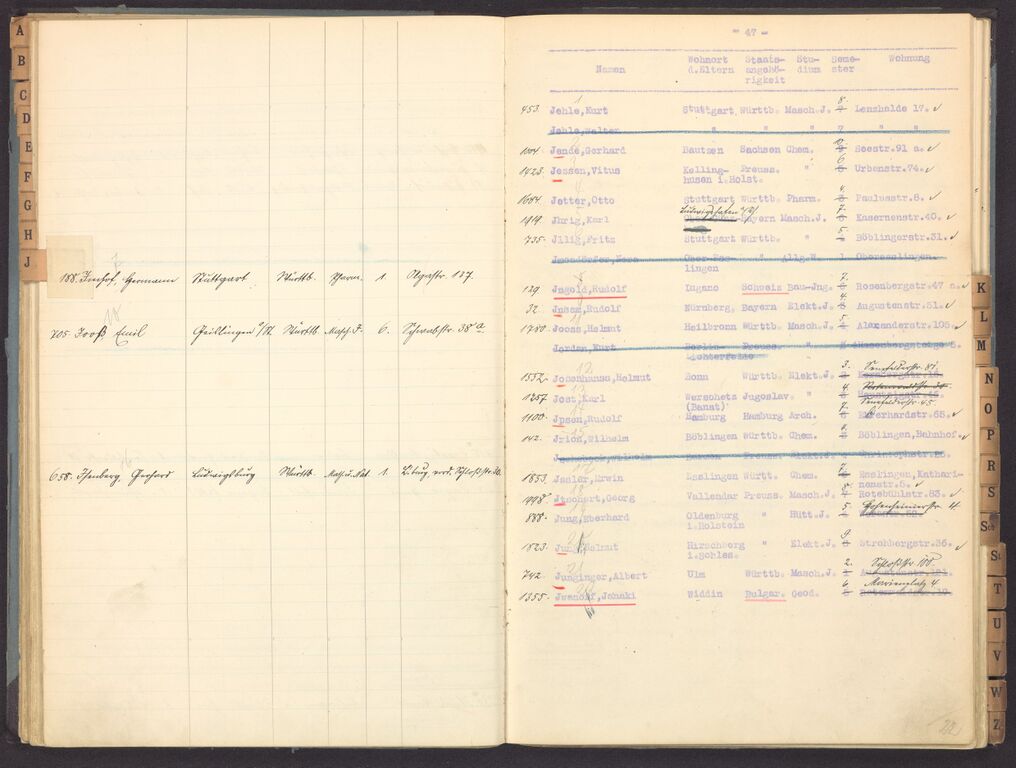 A
B
C
D
E
F
G
H
J
188. Imhof, Hermann Stuttgart Württb. Pharm. 1. Olgastr. 137.
705. Jooß Emil Geislingen a/St. Württb. Masch. J. 6. Schwabstr. 38 a
658. Isenberg, Gerhard Ludwigsburg Württb. Math. u. Nat. 1. Schloßstr.
- 47 -
Namen Wohnort d.Eltern Staats- angehö- rigkeit Stu- dium Seme- ster Wohnung
453. Jehle,Kurt Stuttgart Württb. Masch.J. 8. Lenzhalde 17.
Jehle,Walter " " " 7 " "
Jende,Gerhard Bautzen Sachsen Chem. Seestr.91 a.
1423. Jessen,Vitus Kelling- Preuss. " 6 Urbenstr.74.
husen i.Holst.
1684. Jetter,Otto Stuttgart Württb. Pharm. 4. Paulusstr.8.
1919. Jhrig,Karl Ludwigshafen Bayern Masch.J. 7. Kasernenstr.40.
735. Jllig,Fritz Stuttgart Württb. " 5. Böblingerstr.31.
Jmendörfer,Nora Ober-Ess- " Allg.W. 1 Oberesslingen.
lingen
129. Jngold,Rudolf Lugano Schweiz Bau-Jng. 7. Rosenbergstr.47 a.
32. Jnsam,Rudolf Nürnberg, Bayern Elekt.J. 4. Augustenstr.51.
1780. Jooss,Helmut Heilbronn Württb. Masch.J. 5. Alexanderstr.105.
Jordan,Kurt Berlin- Preuss. " Hasenbergsteige 5.
Lichterfelde
1532. Josenhanss,Helmut Bonn Württb. Elekt.J. 3. Senefelderstr.
1257. Jost,Karl Werschetz Jugoslav. " 4.
(Banat)
1100. Jpsen,Rudolf Hamburg Hamburg Arch. 7. Senefelderstr. 45
Eberhardstr.65.
142. Jrion,Wilhelm Böblingen Württb. Chem. Böblingen,Bahnhof.
1853. Jssler,Erwin Esslingen Württ. Chem. 7. Esslingen, Kathari-
nenstr.6.
1998. Jtschert,Georg Vallendar Preuss. Masch.J. 8. Rotebühlstr.83.
888. Jung,Eberhard Oldenburg " Hütt.J. 5. Hohenheimerstr.
i.Holstein
1823. Jung,Helmut Hirschberg " Elekt.J. 9. Strohbergstr.36.
i.Schles.
742. Junginger,Albert Ulm Württb. Masch.J. 2. Schloßstr. 100.
1355. Jwanoff,Johnki Widdin Bulgar. Geod. 6. Marienplatz 4
22
K
L
M
N
O
P
R
S
Sch
St
T
U
V
W
Z